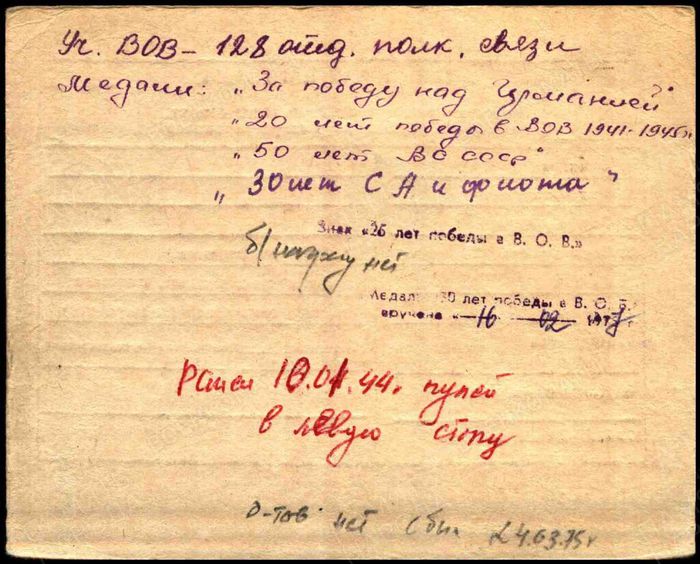 Уч. ВОВ - 128 отд. полк. связи
Медали: „За победу над Германией"
„20 лет победы в ВОВ 1941-1945г"
„50 лет ВС СССР"
„30 лет СА и флота"
Знак «25 лет победы в В. О. В.»
б/ нет
Медаль «30 лет победы в В. О. В.
вручена «16 02 197
Ранен 10.01.44г. пулей
в левую стопу
д-тов нет 24.03.75г